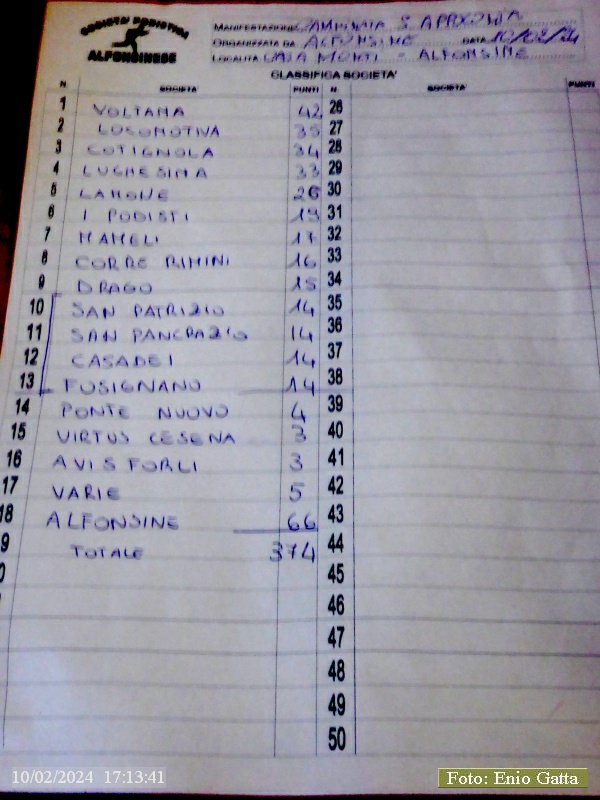 SOCIETA' PODISTICA
ALFONSINESE
MANIFESTAZIONE CAMMINATA S. APPOLONIA
ORGANIZZATA DA ALFONSINE DATA 10/02/24
LOCALITÀ CASA MONTI - ALFONSINE
CLASSIFICA SOCIETA'
N SOCIETA' PUNTI N. SOCIETA' PUNTI
1 VOLTANA 42 26
2 LOCOMOTIVA 35 27
3 COTIGNOLA 34 28
4 LUGHESINA 33 29
5 LAMONE 26 30
6 I PODISTI 19 31
7 MAMELI 17 32
8 CORRE RIMINI 16 33
9 DRAGO 15 34
10 SAN PATRIZIO 14 35
11 SAN PANCRAZIO 14 36
12 CASADEI 14 37
13 FUSIGNANO 14 38
14 PONTE NUOVO 4 39
15 VIRTUS CESENA 3 40
16 AVIS FORLI 3 41
17 VARIE 5 42
18 ALFONSINE 66 43
9 TOTALE 374 44
0 45
46
47
48
49
50
10/02/2024 17:13:41
Foto: Enio Gatta